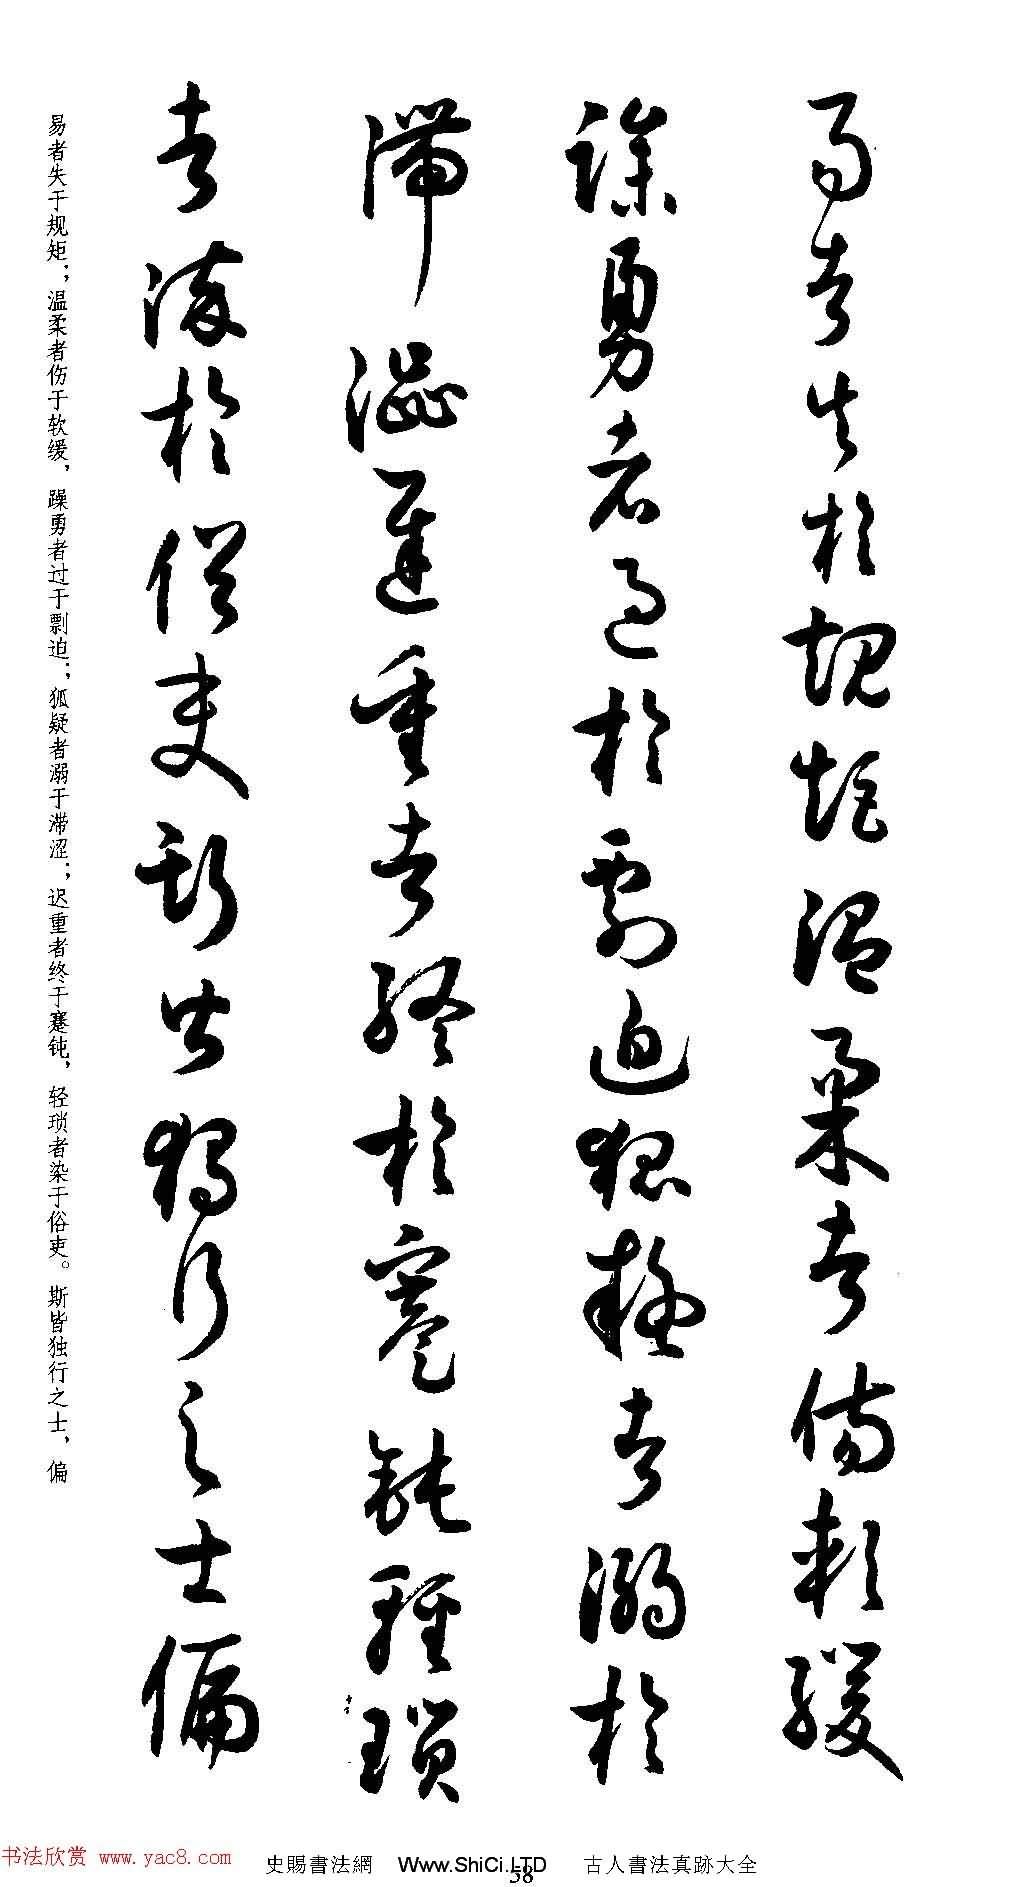 易者失於規矩溫柔者傷軟緩
躁勇者過於剽迫狐疑者溺於
滯澀遲重者終於蹇鈍輕瑣
者染於俗吏斯皆獨行之士偏
易者失于规矩；温柔者伤于软缓，躁勇者过于剽迫；狐疑者溺于滞涩；迟重者终于蹇钝，轻琐者染于俗吏。斯皆独行之士，偏
书法欣赏 www.yac8.com 史賜書法網 Www.ShiCi.LTD 古人書法真跡大全
58